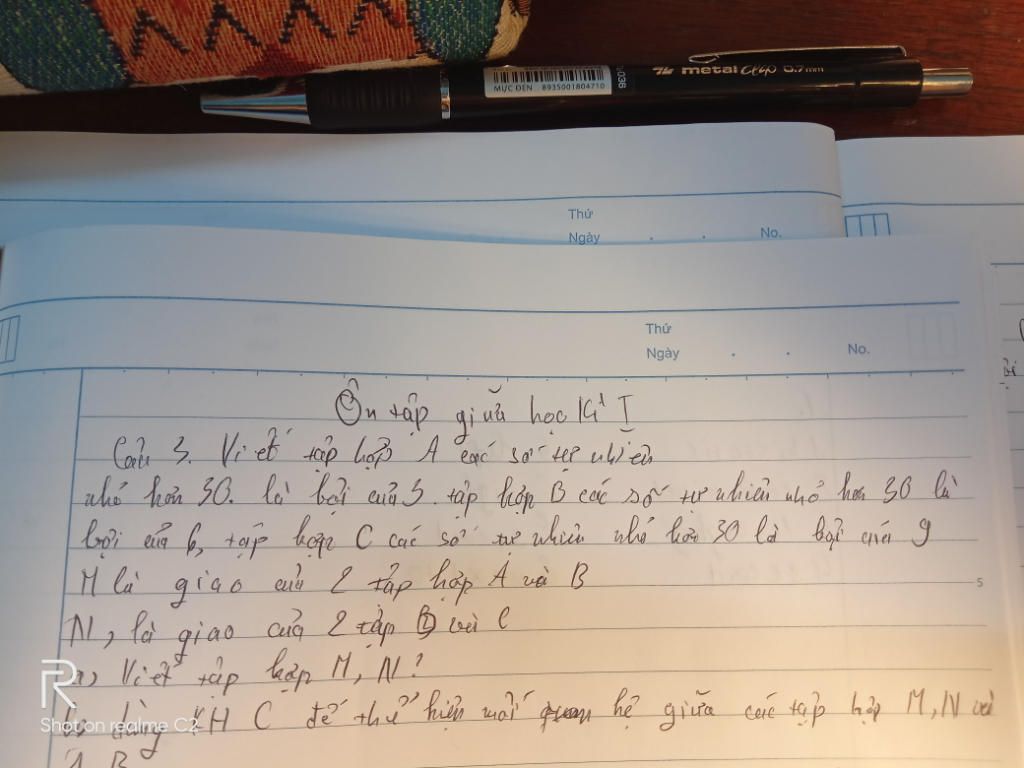 metal clip 0.7mm
MỰC ĐEN 8935001804710
036
Thứ
Ngày . . No.
Thứ
Ngày . . No.
Ôn tập giữa học Kì I
Câu 3. Viết tập hợp A các số tự nhiên
nhỏ hơn 30. là bội của 3. tập hợp B các số tự nhiên nhỏ hơn 30 là
bội của 6, tập hợp C các số tự nhiên nhỏ hơn 30 là bội của 9
M là giao của 2 tập hợp A và B
5
N, là giao của 2 tập B và C
a, Viết tập hợp M, N?
dùng KH C để thể hiện mối quan hệ giữa các tập hợp M, N và
R
Shot on realme C2